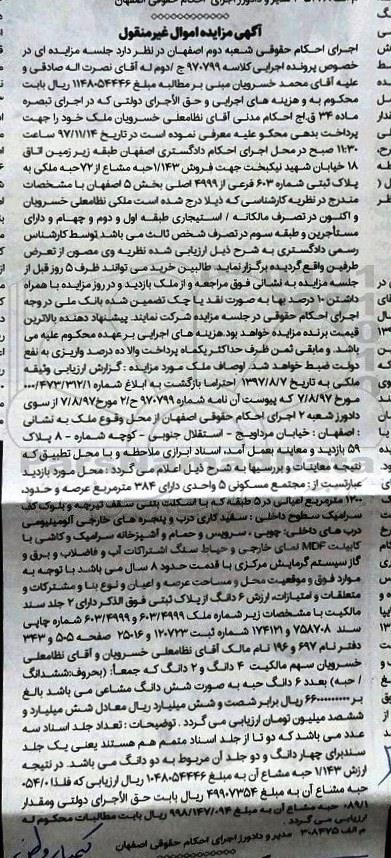 آگهی مزایده اموال غیرمنقول
اجرای احکام حقوقی شعبه دوم اصفهان در نظر دارد جلسه مزایده ای در
خصوص پرونده اجرایی کلاسه ۹۷۰۷۹۹ ج/دوم له آقای نصرت اله صادقی و
علیه آقای محمد خسرویان مبنی بر مطالبه مبلغ ۱۱۴۸۰۵۴۴۴۶ ریال بابت
محکوم به و هزینه های اجرایی و حق الأجرای دولتی که در اجرای تبصره
ماده ۳۴ ق.اج احکام مدنی آقای نظامعلی خسرویان ملک خود را جهت
پرداخت بدهی محکو علیه معرفی نموده است در تاریخ ۹۷/۱۱/۱۴ ساعت
۱۱:۳۰ صبح در محل اجرای احکام دادگستری اصفهان طبقه زیر زمین اتاق
۱۸ خیابان شهید نیکبخت جهت فروش ۱/۱۴۳ حبه مشاع از ۷۲ حبه ملکی به
پلاک ثبتی شماره ۶۰۳ فرعی از ۴۹۹۹ اصلی بخش ۵ اصفهان با مشخصات
مندرج در نظریه کارشناسی که ذیلا درج شده است ملکی نظامعلی خسرویان
و اکنون در تصرف مالکانه / استیجاری طبقه اول و دوم و چهام و دارای
مستأجرین و طبقه سوم در تصرف شخص ثالث می باشد.توسط کارشناس
رسمی دادگستری به شرح ذیل ارزیابی شده نظریه وی مصون از تعرض
طرفین واقع گردیده برگزار نماید. طالبین خرید می توانند ظرف ۵ روز قبل از
جلسه مزایده به نشانی فوق مراجعه و از ملک بازدید و در روز مزایده با همراه
داشتن ۱۰ درصد بها به صورت نقد یا چک تضمین شده بانک ملی در وجه
اجرای احکام حقوقی در جلسه مزایده شرکت نمایند. پیشنهاد دهنده بالاترین
قیمت برنده مزایده خواهد بود.هزینه های اجرایی بر عهده محکوم علیه می
باشد. و مابقی ثمن ظرف حداکثر یکماه پرداخت والا ده درصد واریزی به نفع
دولت ضبط خواهد شد. اوصاف ملک مورد مزایده : گزارش ارزیابی وثیقه
ملکی به تاریخ ۱۳۹۷/۸/۷ احتراما بازگشت به ابلاغ شماره ۰۰۰/۴۷۳/۳۱۲/۱
مورخ ۷/۸/۹۷ که پیوست آن نامه شماره ۹۷۰۷۹۹ ح/۲ مورخ ۷/۸/۹۷ از سوی
دادورز شعبه ۲ اجرای احکام حقوقی اصفهان از محل وقوع ملک به نشانی
: اصفهان : خیابان مرداویج – استقلال جنوبی – کوچه شماره ۸۰ پلاک
۵۹ بازدید و معاینه بعمل آمد، اسناد ابرازی ملاحظه و با محل تطبیق که
نتیجه معاینات و بررسیها به شرح ذیل اعلام می گردد : محل مورد بازدید
عبارتست از : مجتمع مسکونی ۵ واحدی دارای ۳۸۴ مترمربع عرصه و حدود،
۱۲۰۰ مترمربع اعیانی در ۵ طبقه که با اسکلت بتنی سقف تیرچه و بلوک کف
سرامیک سطوح داخلی : سفید کاری درب و پنجره های خارجی آلومینیومی
درب های داخلی: چوبی، سرویس و حمام و آشپزخانه سرامیک و کاشی با
کابینت MDF نمای خارجی و حیاط سنگ اشتراکات آب و فاضلاب و برق و
گاز سیستم گرمایش مرکزی با قدمت حدود ۸ سال می باشد با توجه به
موارد فوق و موقعیت محل و مساحت عرصه و اعیان و نوع بنا و مشترکات و
متعلقات و امتیازات، ارزش ۶ دانگ از پلاک ثبتی فوق الذکر دارای ۲ جلد سند
مالکیت با مشخصات زیر شماره ملک ۶۰۳/۴۹۹۹ و ۶۰۳/۴۹۹۹ شماره چاپی
سند ۷۵۸۷۰۸ و ۱۷۴۱۲۱ شماره ثبت ۱۲۰۷۲۳ و ۲۵۰۱۶ صفحه ۵۰۵ و ۳۴۳
دفتر نام ۶۹۷ و ۱۹۶ نام مالک آقای نظامعلی خسرویان و آقای نظامعلی
خسرویان سهم مالکیت ۴ دانگ و ۲ دانگ که جمعاً: (بحروف:ششدانگ
/ حبه) بعدد ۶ دانگ حبه به صورت شش دانگ مشاعی می باشد بالغ
بر ریال برابر شصت و شش میلیارد ریال معادل شش میلیارد و
ششصد میلیون تومان ارزیابی می گردد . توضیحات : تعداد جلد اسناد سه
عدد می باشد که دو تا از جلد اسناد متمم هم هستند یعنی یک جلد
سندبرای چهار دانگ و دو جلد آن مربوط به دو دانگ می باشد. در نتیجه
ارزش ۱/۱۴۳ حبه مشاع آن به مبلغ ۱۰۴۸۰۵۴۴۴۶ ریال ارزیابی که فلذا ۰/۰۵۴
حبه مشاع آن به مبلغ ۴۹۹۰۷۳۵۴ ریال بابت حق الأجرای دولتی ومقدار
۱/۰۸۹ حبه مشاع آن به مبلغ ۹۹۸/۱۴۷/۰۹۴ ریال بابت مطالبات محکوم له
ارزیابی می گردد.
م الف ۳۰۸۴۷۵ مدیر و دادورز اجرای احکام حقوقی اصفهان